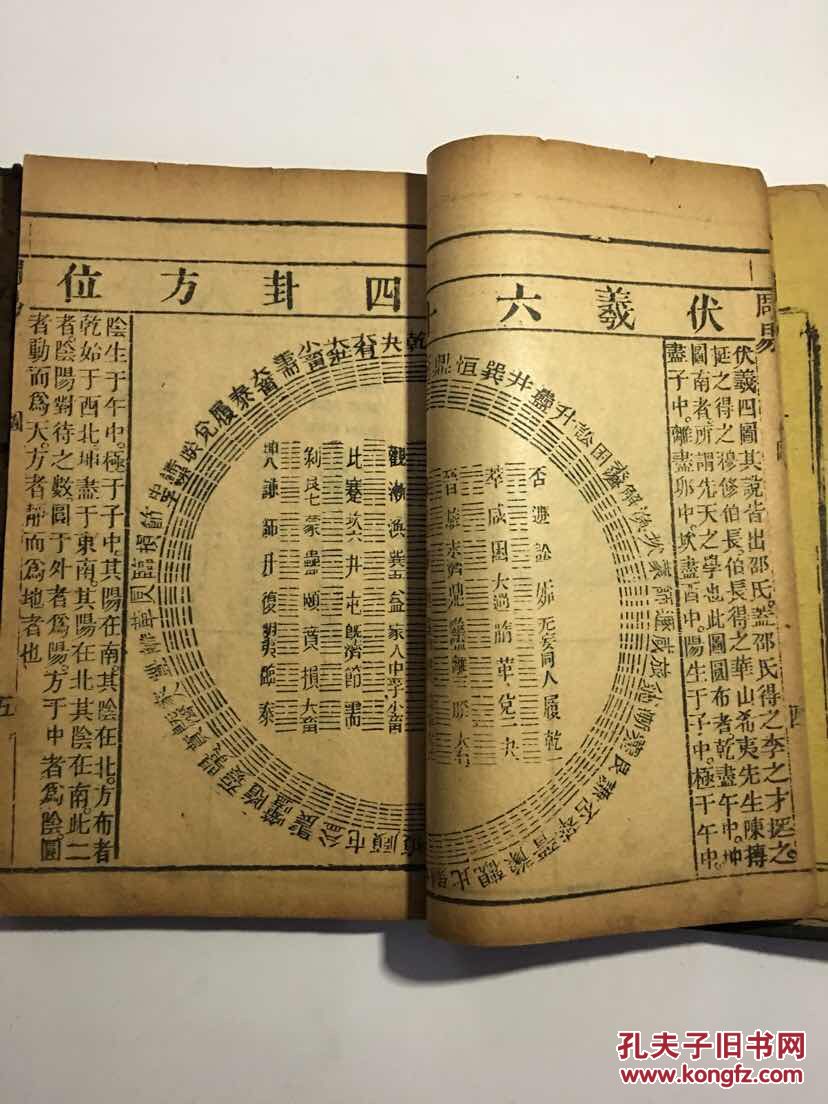 伏羲六十四卦方位
周易
伏羲四圖其說皆出邵氏蓋邵氏得之李之才挺之
挺之得之穆修伯長伯長得之華山希夷先生陳摶
圖南者所謂先天之學也此圖圓布者乾盡午中坤
盡子中離盡卯中坎盡酉中陽生于子中極于午中
四
否 遯 訟 姤 无妄 同人 履 乾一
萃 咸 困 大過 隨 革 兌二 夬
晉 旅 未濟 鼎 噬 離三 睽 大有
觀 漸 渙 巽五 益 家人 中孚 小畜
比 蹇 坎六 井 屯 旣濟 節 需
剝 艮七 蒙 蠱 頤 賁 損 大畜
坤八 謙 師 升 復 明夷 臨 泰
恒 巽 井 蠱 升 訟 困
解 渙
夬 大有 大壯 小畜 需 大畜 泰 履 兌 睽
節 損 臨
屯 頤
觀 比 剝
陰生于午中。極于子中。其陽在南。其陰在北。方布者
乾始于西北。坤盡于東南。其陽在北。其陰在南。此二
者。陰陽對待之數。圓于外者爲陽。方于中者爲陰。圓
者動而爲天。方者靜而爲地者也
圖
五
孔夫子旧书网
www.kongfz.com